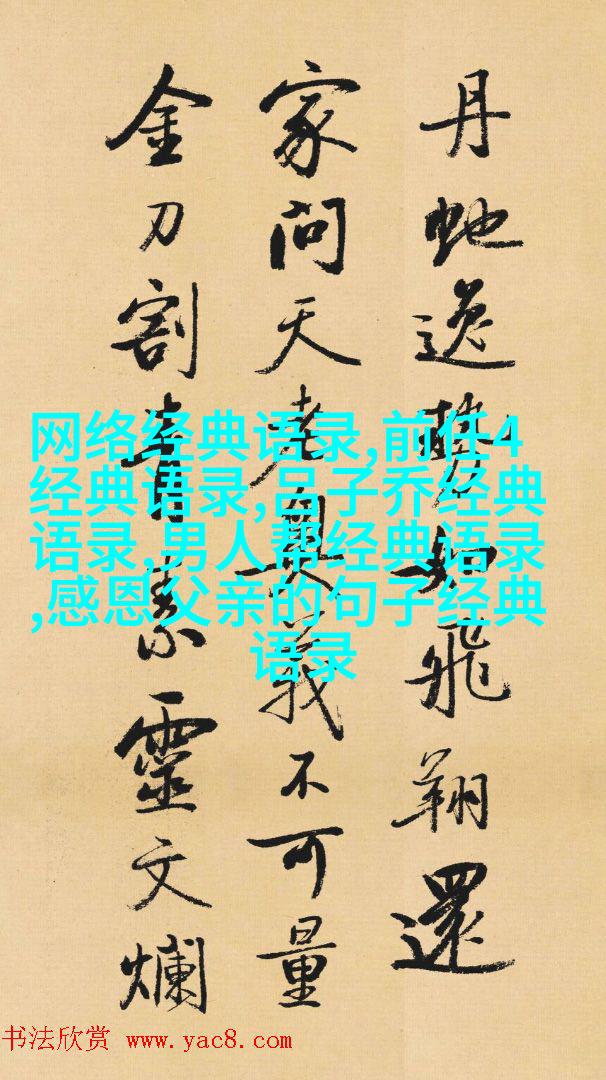 丹虵逸勢如飛翔還
家問天老奥義不可量
金刀割青素靈文爛
网络经典语录,前任4
经典语录,吕子乔经典
语录,男人帮经典语录
,感恩父亲的句子经典
语录
书法欣赏 www.yac8.com